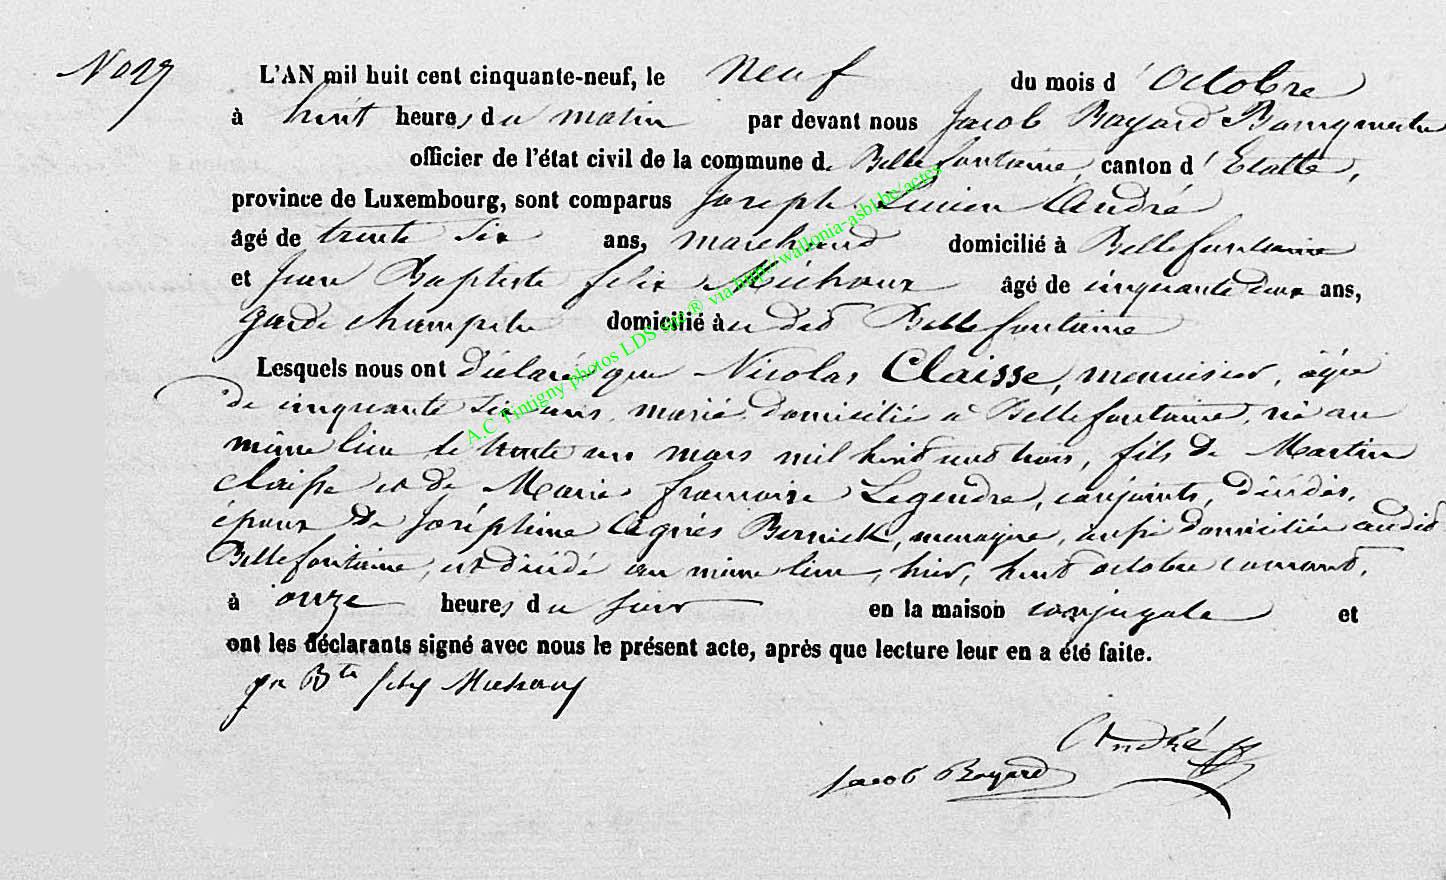 No 27
L'AN mil huit cent cinquante-neuf, le neuf du mois d'Octobre
à huit heures du matin par devant nous Jacob Bayard Bourgmestre
officier de l'état civil de la commune de Bellefontaine, canton d'Etalle,
province de Luxembourg, sont comparus Joseph Lucien André
âgé de trente six ans, marchand domicilié à Bellefontaine
et Jean Baptiste felix Michaux âgé de cinquante deux ans,
garde champetre domicilié àu dit Bellefontaine
Lesquels nous ont déclaré que Nicolas Claisse, menuisier, âgé
de cinquante six ans, marié, domicilié à Bellefontaine, né au
même lieu le trente un mars mil huit cent trois, fils de Martin
Claisse et de Marie françoise Legendre, conjoints, décédés,
époux de Joséphine Agnés Bernick, menagère, aussi domiciliée audit
Bellefontaine, est décédé au même lieu, hier, huit octobre courant,
à onze heures du soir en la maison conjugale et
ont les déclarants signé avec nous le présent acte, après que lecture leur en a été faite.
jn Bte felix Michaux
André
Jacob Bayard
A.C Tintigny photos LDS sur ® via http://wallonia-asbl.be/actes